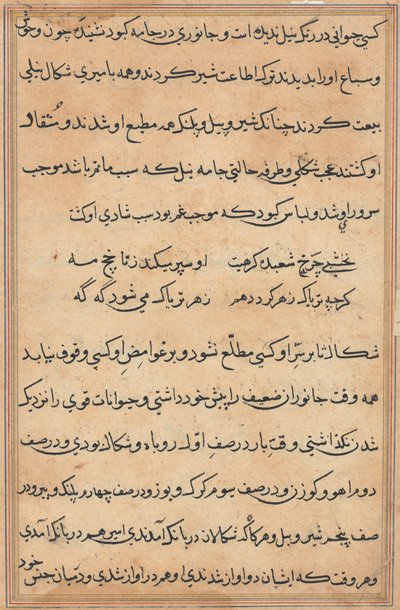 کسی حیوانی در رنگ نیل ندیده است و جانوری در جامه کبود نشنیده چون وحوش
و سباع او را بدیدند ترک اطاعت شیر کردند و همه با میری شکال نیلی
بیعت کردند چنانکه شیر و پیل و پلنک همه مطیع او شدند و منقاد
او کشتند عجب شکلی و طرفه حالتی جامه نیل که سبب ماتم باشد موجب
سرور او شد و لباس کبود که موجب غم بود سبب شادی او کشت
نخشبی چرخ شعبده کرهیت او سپر میکند زنا خج مه
کرچه تریاک زهر کردد هم زهر تریاک می شود که که
شکال تا بر سر او کسی مطلع نشود و بر غوامض او کسی وقوف نیابد
همه وقت جانوران ضعیف را پیش خود داشتی و حیوانات قوی را نزدیک
شدن نکذاشتی وقت بار در صف اول روباه و شکال بودی و در صف
دوم آهو و کوزن و در صف سوم کرک و یوز و در صف چهارم پلنک و ببر و در
صف پنجم شیر و پیل و هرکاه که شکالان در بانک آمدندی امیر هم در بانک آمدی
و هر وقت که ایشان در آواز شدندی او هم در آواز شدی و در میان جنس خود